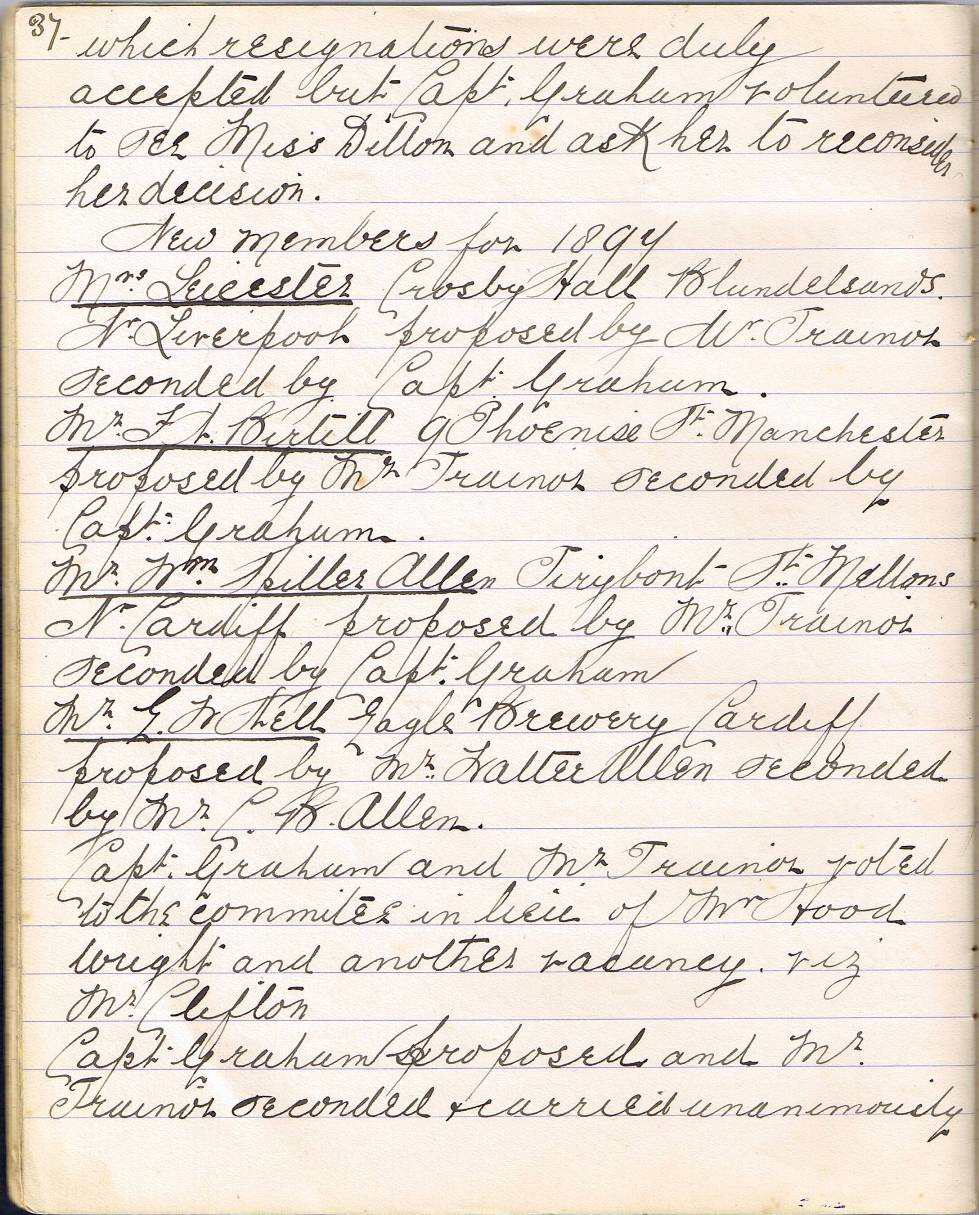 37-
which resignations were duly
accepted but Capt. Graham volunteered
to see Miss Dillon and ask her to reconsider
her decision.
New members for 1894
Mrs. Leicester Crosby Hall Blundelsands.
Nr. Liverpool proposed by Mr. Trainor
seconded by Capt. Graham.
Mr. F. A. Birtill 9 Phoenise St. Manchester
proposed by Mr Trainor seconded by
Capt. Graham.
Mr. Wm Spiller Allen Tirybont St. Mellons
Nr. Cardiff proposed by Mr. Trainor
seconded by Capt. Graham
Mr. G. W Shell Eagle Brewery Cardiff
proposed by Mr. Walter Allen seconded
by Mr. C. B. Allen.
Capt. Graham and Mr Trainor voted
to the commitee in lieu of Mr Hood
Wright and another vacancy. viz
Mr. Clifton
Capt. Graham proposed and Mr.
Trainor seconded & carried unanimously